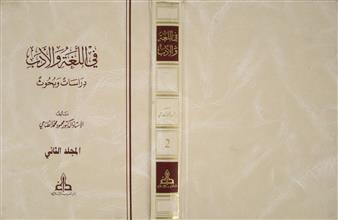 في اللغة والأدب
دراسات وبحوث
تأليف
الأستاذ الدكتور محمود محمد الطناحي
المجلد الثاني
في اللغة
والأدب
2